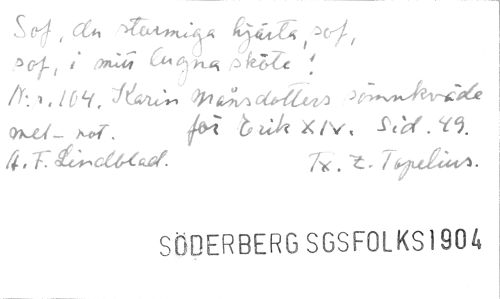 Sof, du stormiga hjärta, sof,
sof, i mitt lugna sköte!
N:r. 104. Karin Månsdotters sömnkväde
mel-not. för Erik XIV. Sid. 49.
A. F. Lindblad. Tx. Z. Topelius.
SÖDERBERG SGSFOLKS1904